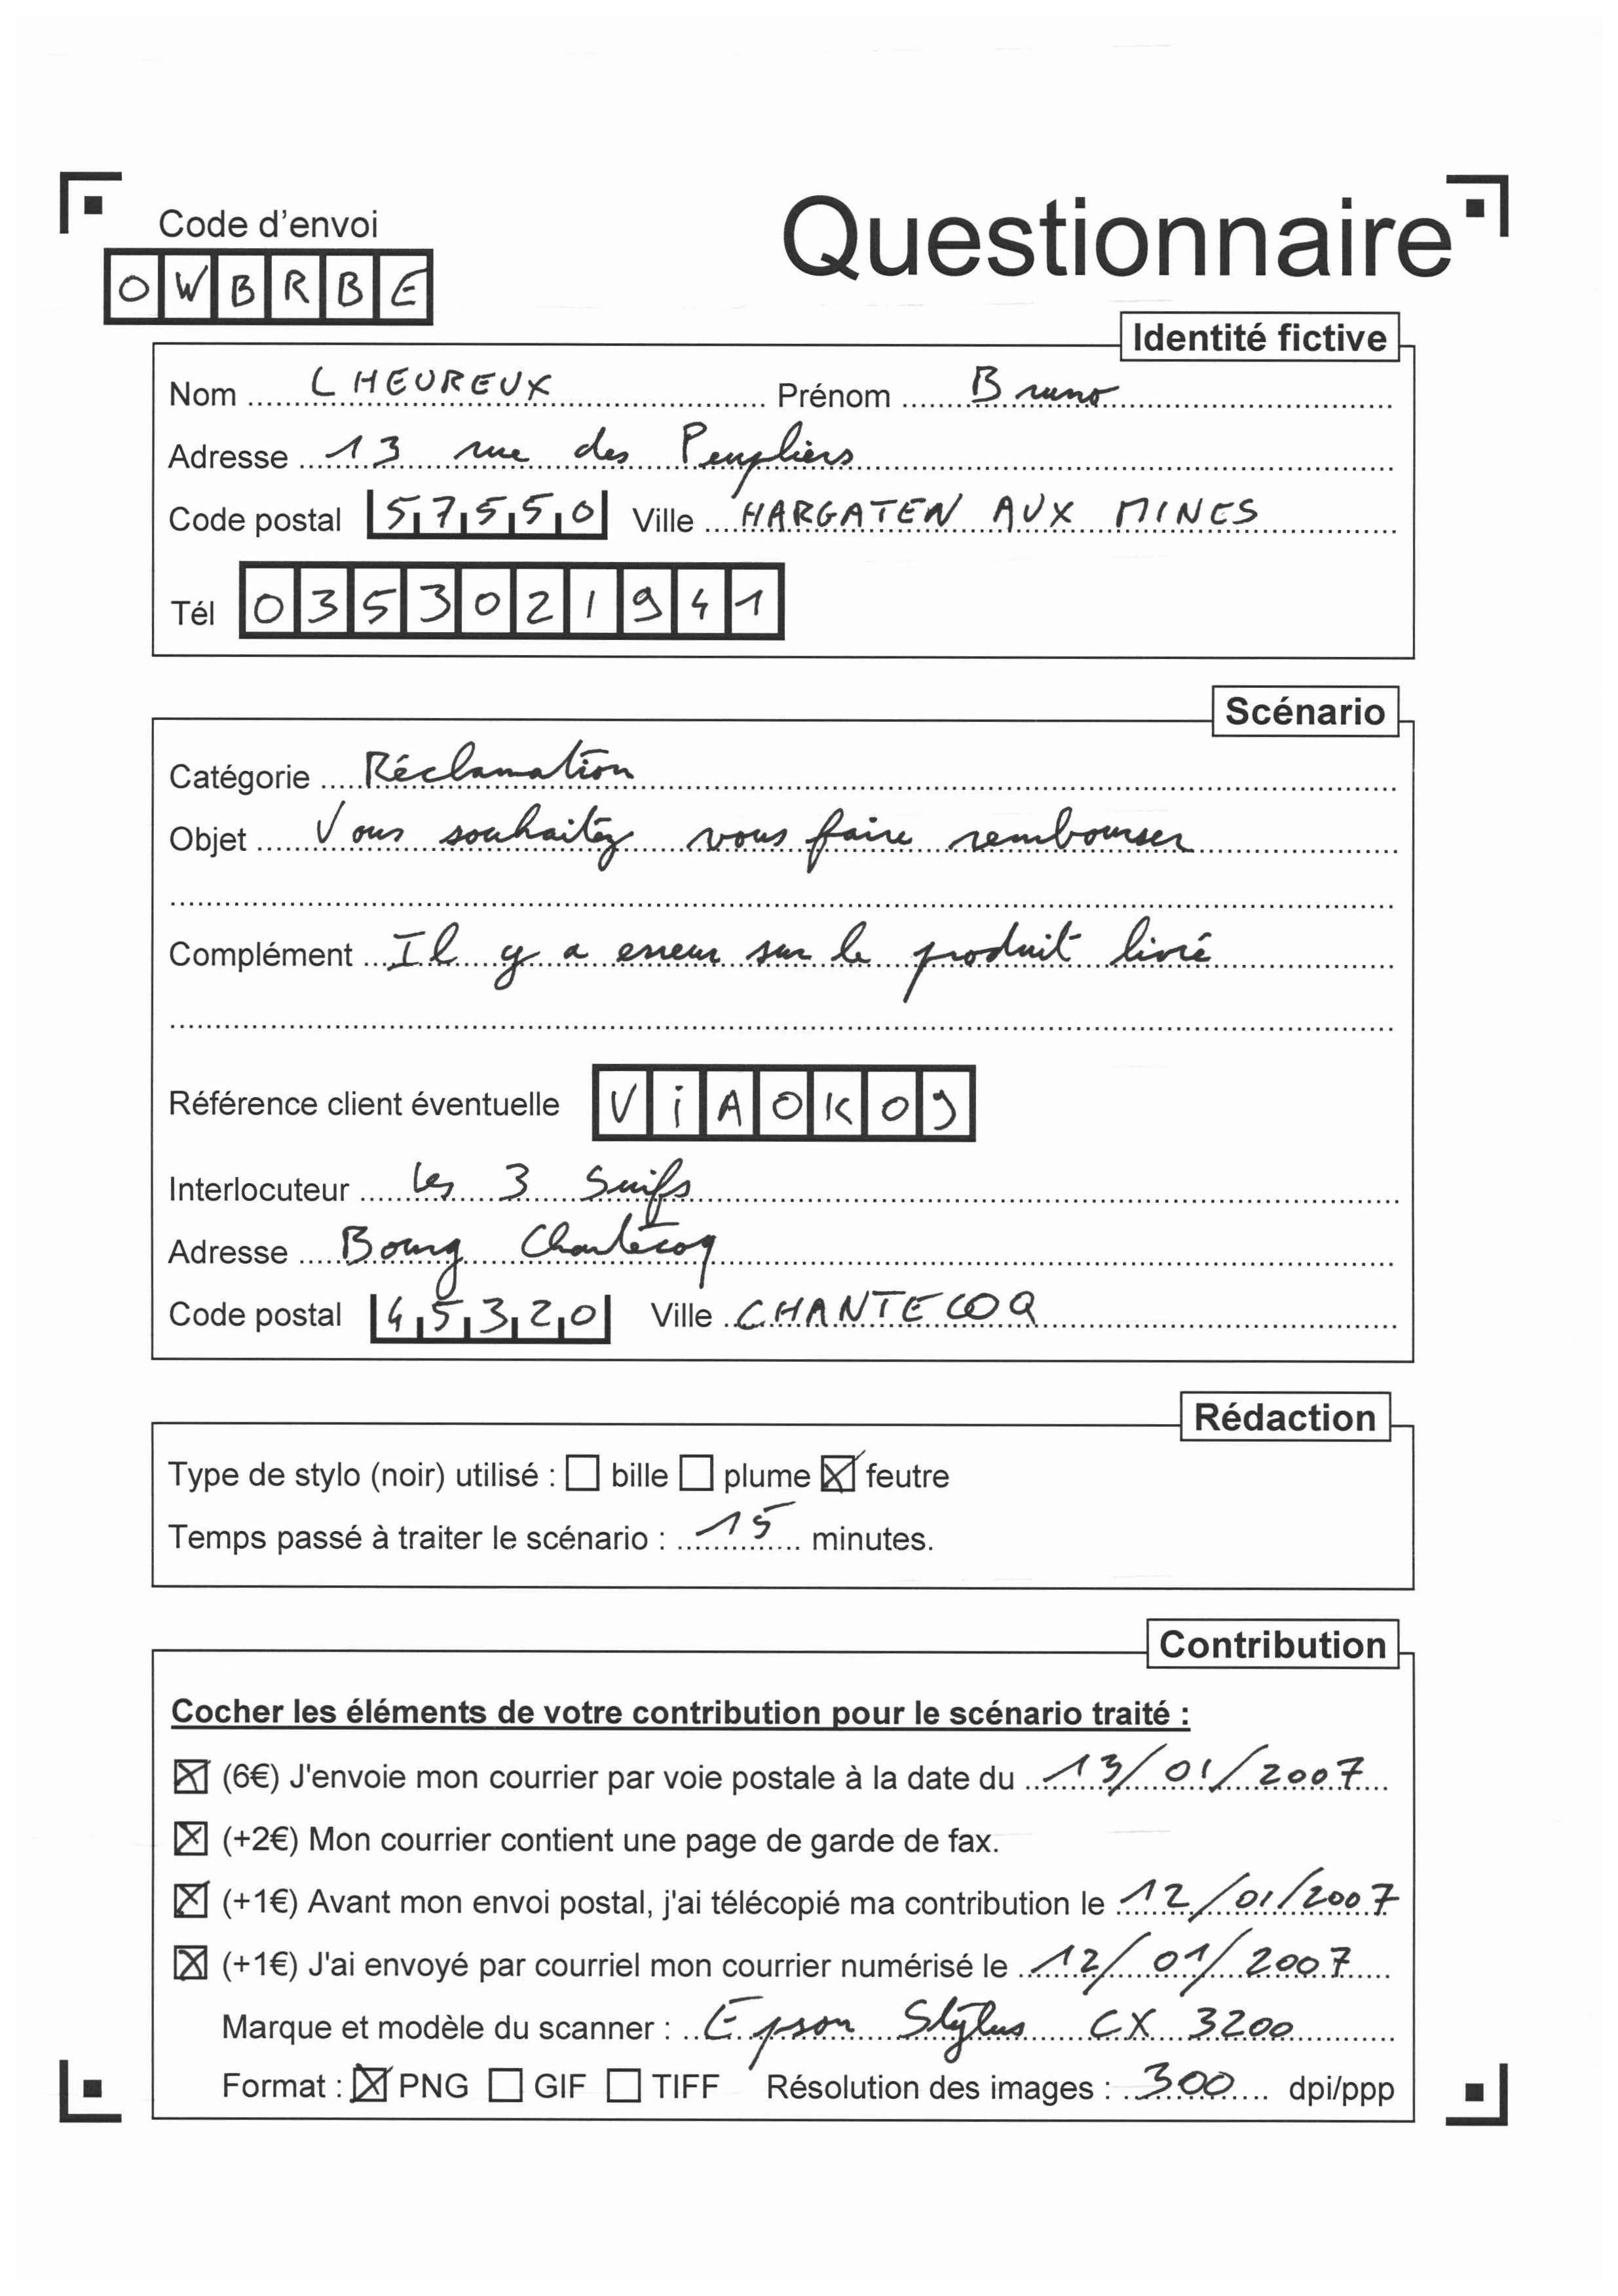 Code d'envoi
Questionnaire
OWBRBE
Identité fictive
Nom LHEUREUX Prénom Bruno
Adresse 13 rue des Peupliers
Code postal 57550 Ville HARGATEN AUX MINES
Tél 0353021941
Scénario
Catégorie Réclamation
Objet Vous souhaitez vous faire rembourser
Complément Il y a erreur sur le produit livré
Référence client éventuelle ViAOKO9
Interlocuteur Les 3 Suifs
Adresse Bourg Chantecoq
Code postal 45320 Ville CHANTECOQ
Rédaction
Type de stylo (noir) utilisé : ☐ bille ☐ plume ☒ feutre
Temps passé à traiter le scénario : 15 minutes.
Contribution
Cocher les éléments de votre contribution pour le scénario traité :
☒ (6€) J'envoie mon courrier par voie postale à la date du 13/01/2007
☒ (+2€) Mon courrier contient une page de garde de fax.
☒ (+1€) Avant mon envoi postal, j'ai télécopié ma contribution le 12/01/2007
☒ (+1€) J'ai envoyé par courriel mon courrier numérisé le 12/01/2007
Marque et modèle du scanner : Epson Stylus CX 3200
Format : ☒ PNG ☐ GIF ☐ TIFF Résolution des images : 300 dpi/ppp